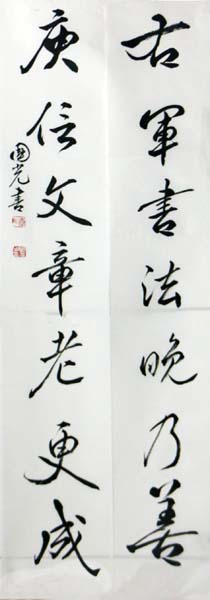 右軍書法晚乃善
庾信文章老更成
國光書